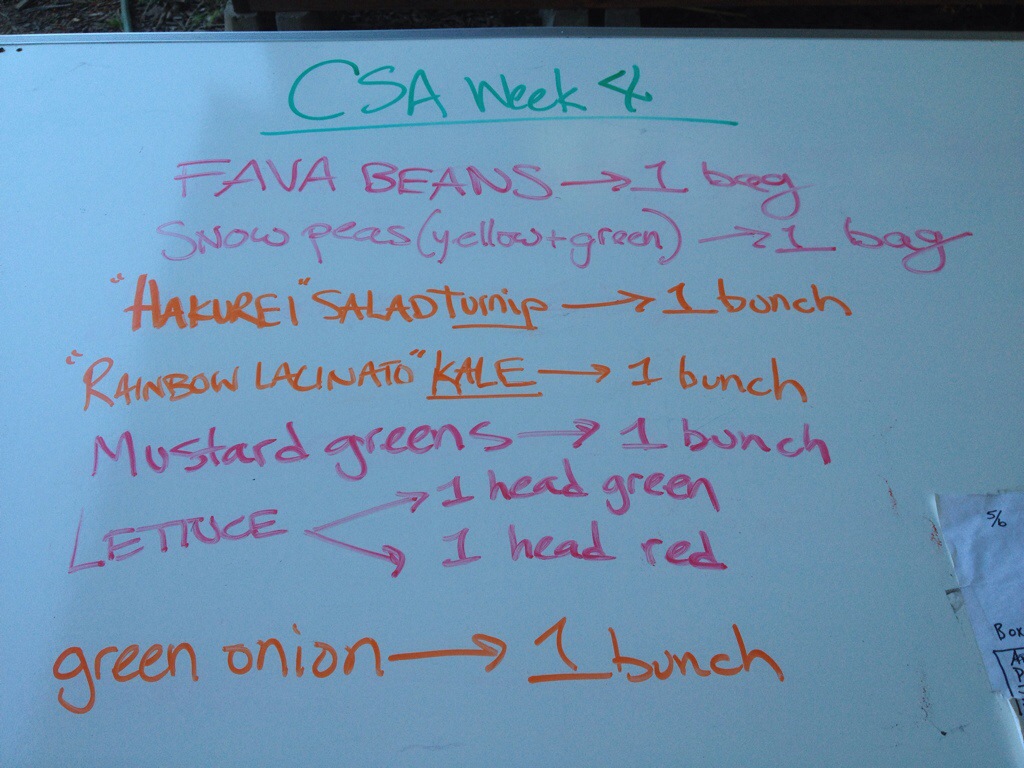 CSA Week 4
FAVA BEANS → 1 bag
Snow peas (yellow + green) → 1 bag
"HAKUREI" SALAD turnip → 1 bunch
"RAINBOW LACINATO" KALE → 1 bunch
Mustard greens → 1 bunch
LETTUCE → 1 head green
→ 1 head red
green onion → 1 bunch
5/6
BOX